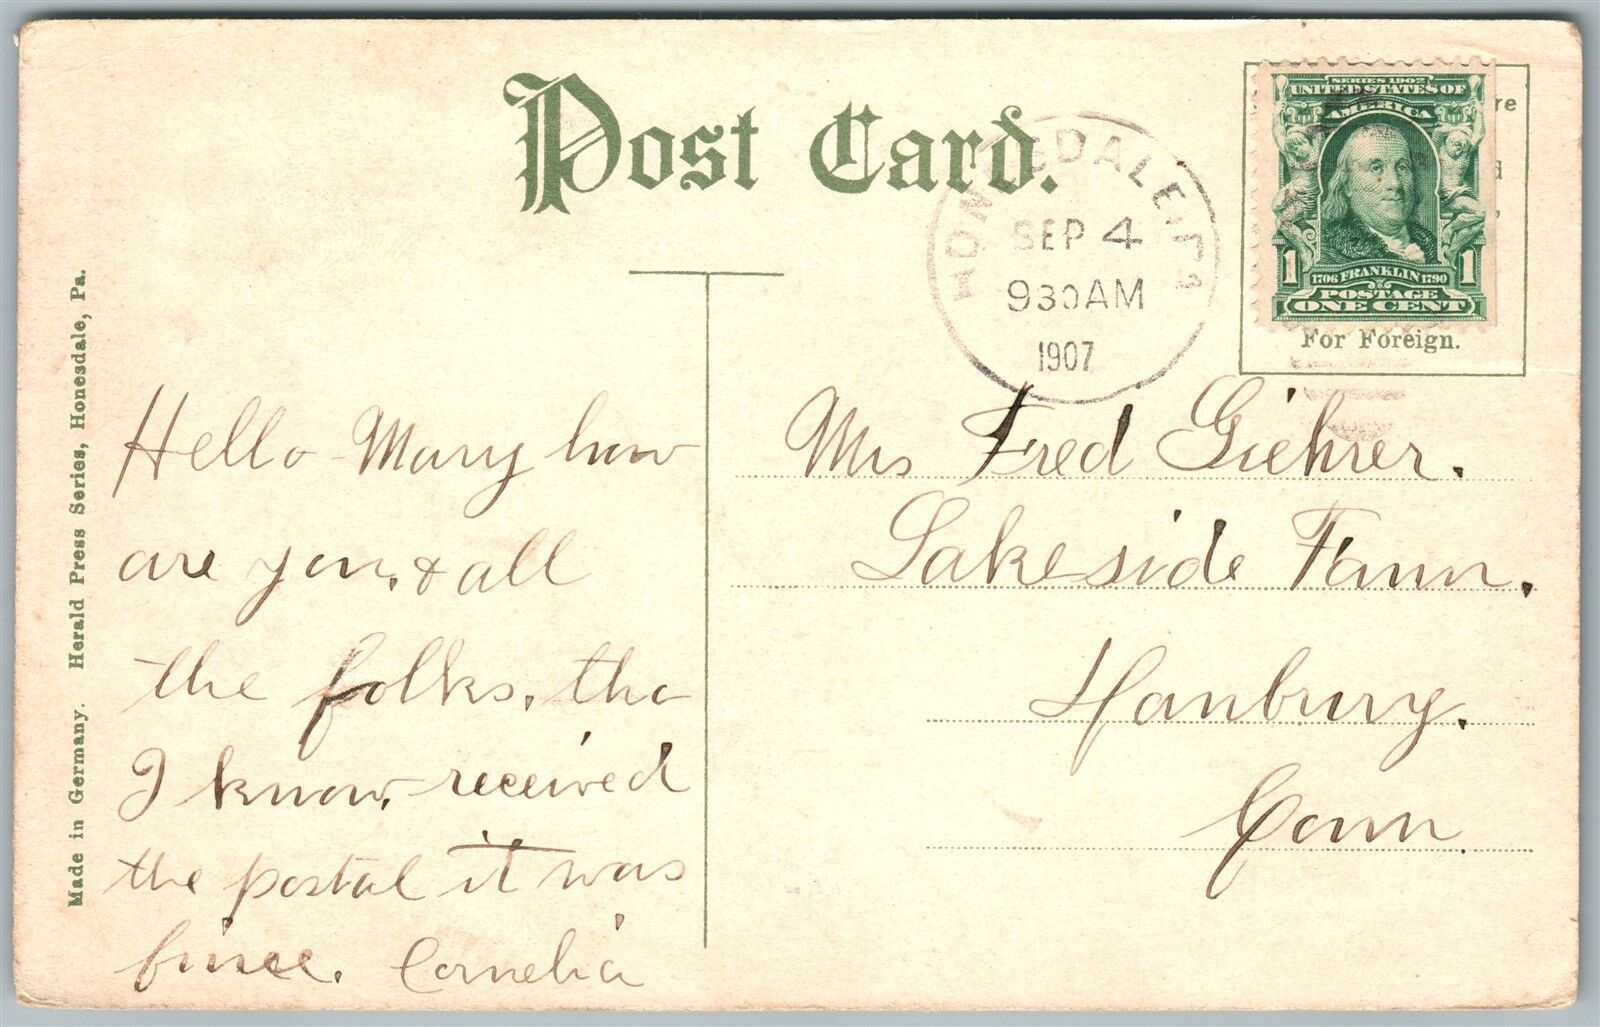 Post Card.
HONESDALE, PA
SEP 4
930AM
1907
SERIES 1902
UNITED STATES OF
AMERICA
1 1706 FRANKLIN 1790 1
POSTAGE
ONE CENT
re
d
For Foreign.
Made in Germany. Herald Press Series, Honesdale, Pa.
Hello Mary how
are you, & all
the folks, tho
I know, received
the postal it was
fince. Cornelia
Mrs Fred Giehrer.
Lakeside Farm.
Hanbury.
Conn.